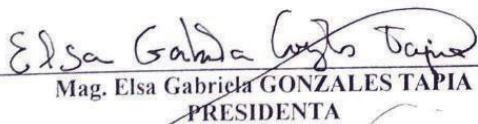 Elsa Gabriela Gonzales Tapia
Mag. Elsa Gabriela GONZALES TAPIA
PRESIDENTA